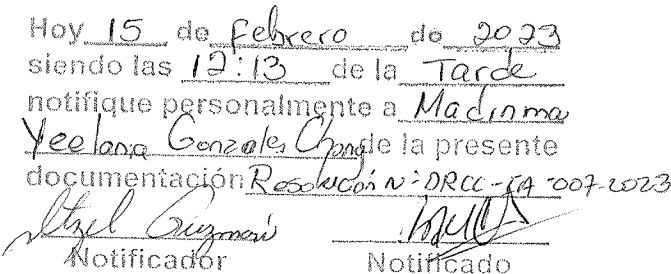 Hoy 15 de Febrero de 2023
siendo las 12:13 de la Tarde
notifique personalmente a Madinma
Yeelania Gonzales Chong de la presente
documentación Resolución N° DRCC-IA-007-2023
Itzel Guzmán
Notificador Notificado